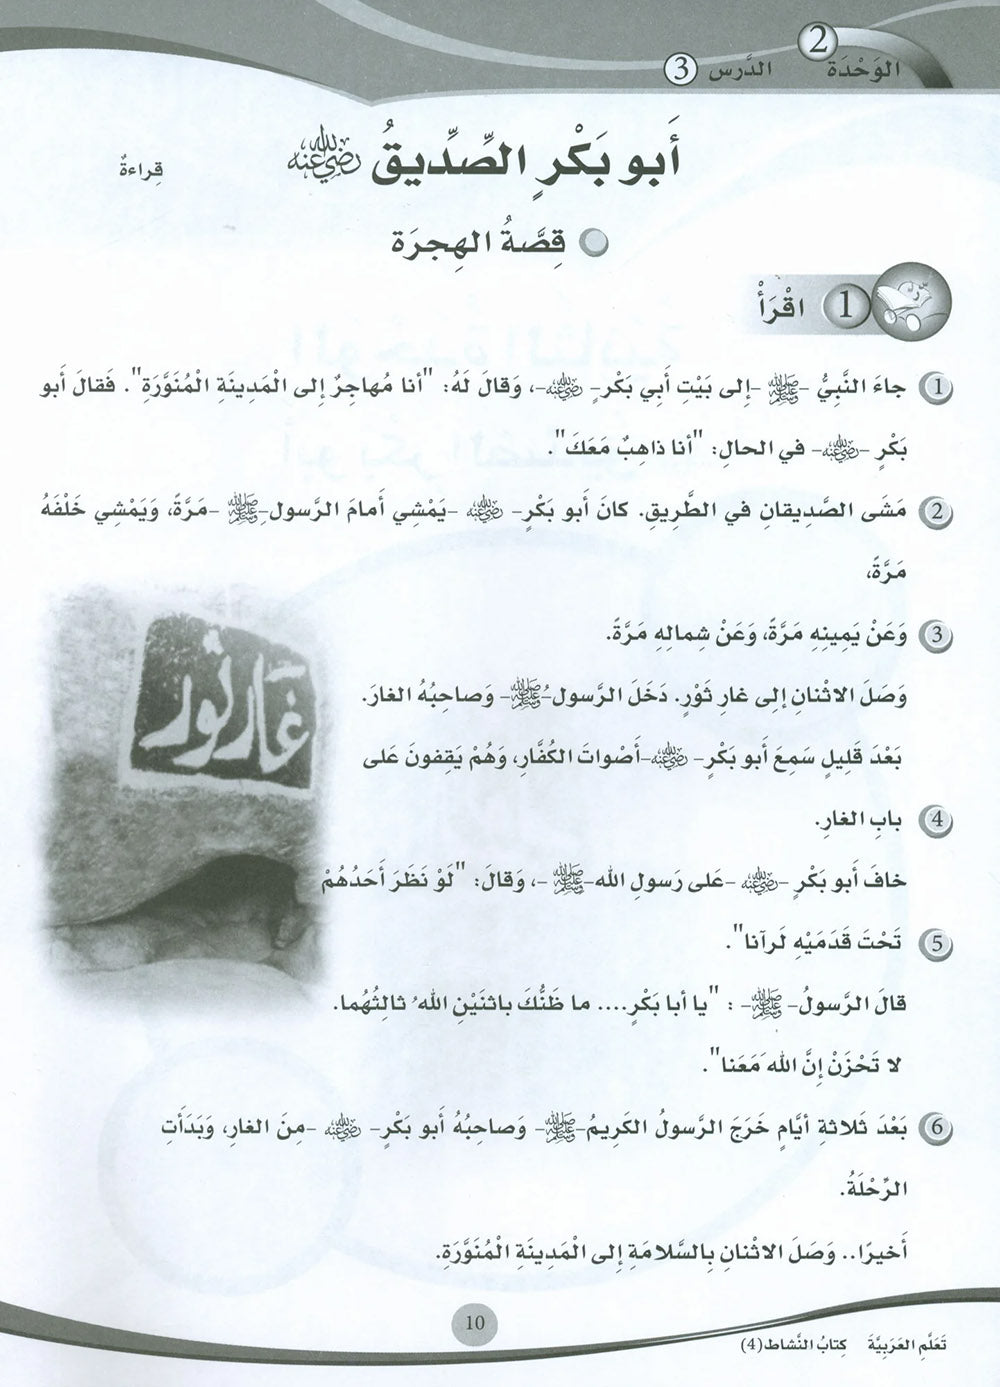 الوَحْدَة 2
الدَّرس 3
أَبو بَكْرٍ الصِّدِّيقُ رضي الله عنه
قِراءةٌ
قِصَّةُ الهِجرَة
1 اقْرَأْ
1 جاءَ النَّبِيُّ -ﷺ- إلى بَيْتِ أَبِي بَكْرٍ- رضي الله عنه-، وَقالَ لَهُ: "أنا مُهاجِرٌ إلى الْمَدِينَةِ الْمُنَوَّرَةِ". فَقالَ أَبو
بَكْرٍ -رضي الله عنه- في الحالِ: "أنا ذاهِبٌ مَعَكَ".
2 مَشَى الصَّدِيقانِ في الطَّرِيقِ. كانَ أَبو بَكْرٍ- رضي الله عنه -يَمْشِي أَمامَ الرَّسول-ﷺ -مَرَّةً، وَيَمْشِي خَلْفَهُ
مَرَّةً،
3 وَعَنْ يَمِينِهِ مَرَّةً، وَعَنْ شِمالِهِ مَرَّةً.
وَصَلَ الاثْنانِ إلى غارِ ثَوْرٍ. دَخَلَ الرَّسولُ-ﷺ- وَصاحِبُهُ الغارَ.
بَعْدَ قَلِيلٍ سَمِعَ أَبو بَكْرٍ- رضي الله عنه-أَصْواتَ الكُفَّارِ، وَهُمْ يَقِفونَ عَلى
4 بابِ الغارِ.
خافَ أَبو بَكْرٍ -رضي الله عنه -عَلى رَسولِ الله-ﷺ -، وَقالَ: "لَوْ نَظَرَ أَحَدُهُمْ
5 تَحْتَ قَدَمَيْهِ لَرآنا".
قالَ الرَّسولُ- ﷺ- : "يا أبا بَكْرٍ.... ما ظَنُّكَ باثنَيْنِ اللهُ ثالِثُهُما.
لا تَحْزَنْ إِنَّ اللهَ مَعَنا".
6 بَعْدَ ثَلاثةِ أيَّامٍ خَرَجَ الرَّسولُ الكَرِيمُ-ﷺ- وَصاحِبُهُ أَبو بَكْرٍ- رضي الله عنه -مِنَ الغارِ، وَبَدَأَتِ
الرِّحْلَةُ.
أَخيرًا.. وَصَلَ الاثْنانِ بِالسَّلامَةِ إلى الْمَدِينَةِ الْمُنَوَّرَةِ.
غار ثور
10
تَعَلَّمِ العَرَبِيَّةَ كِتابُ النَّشاط(4)